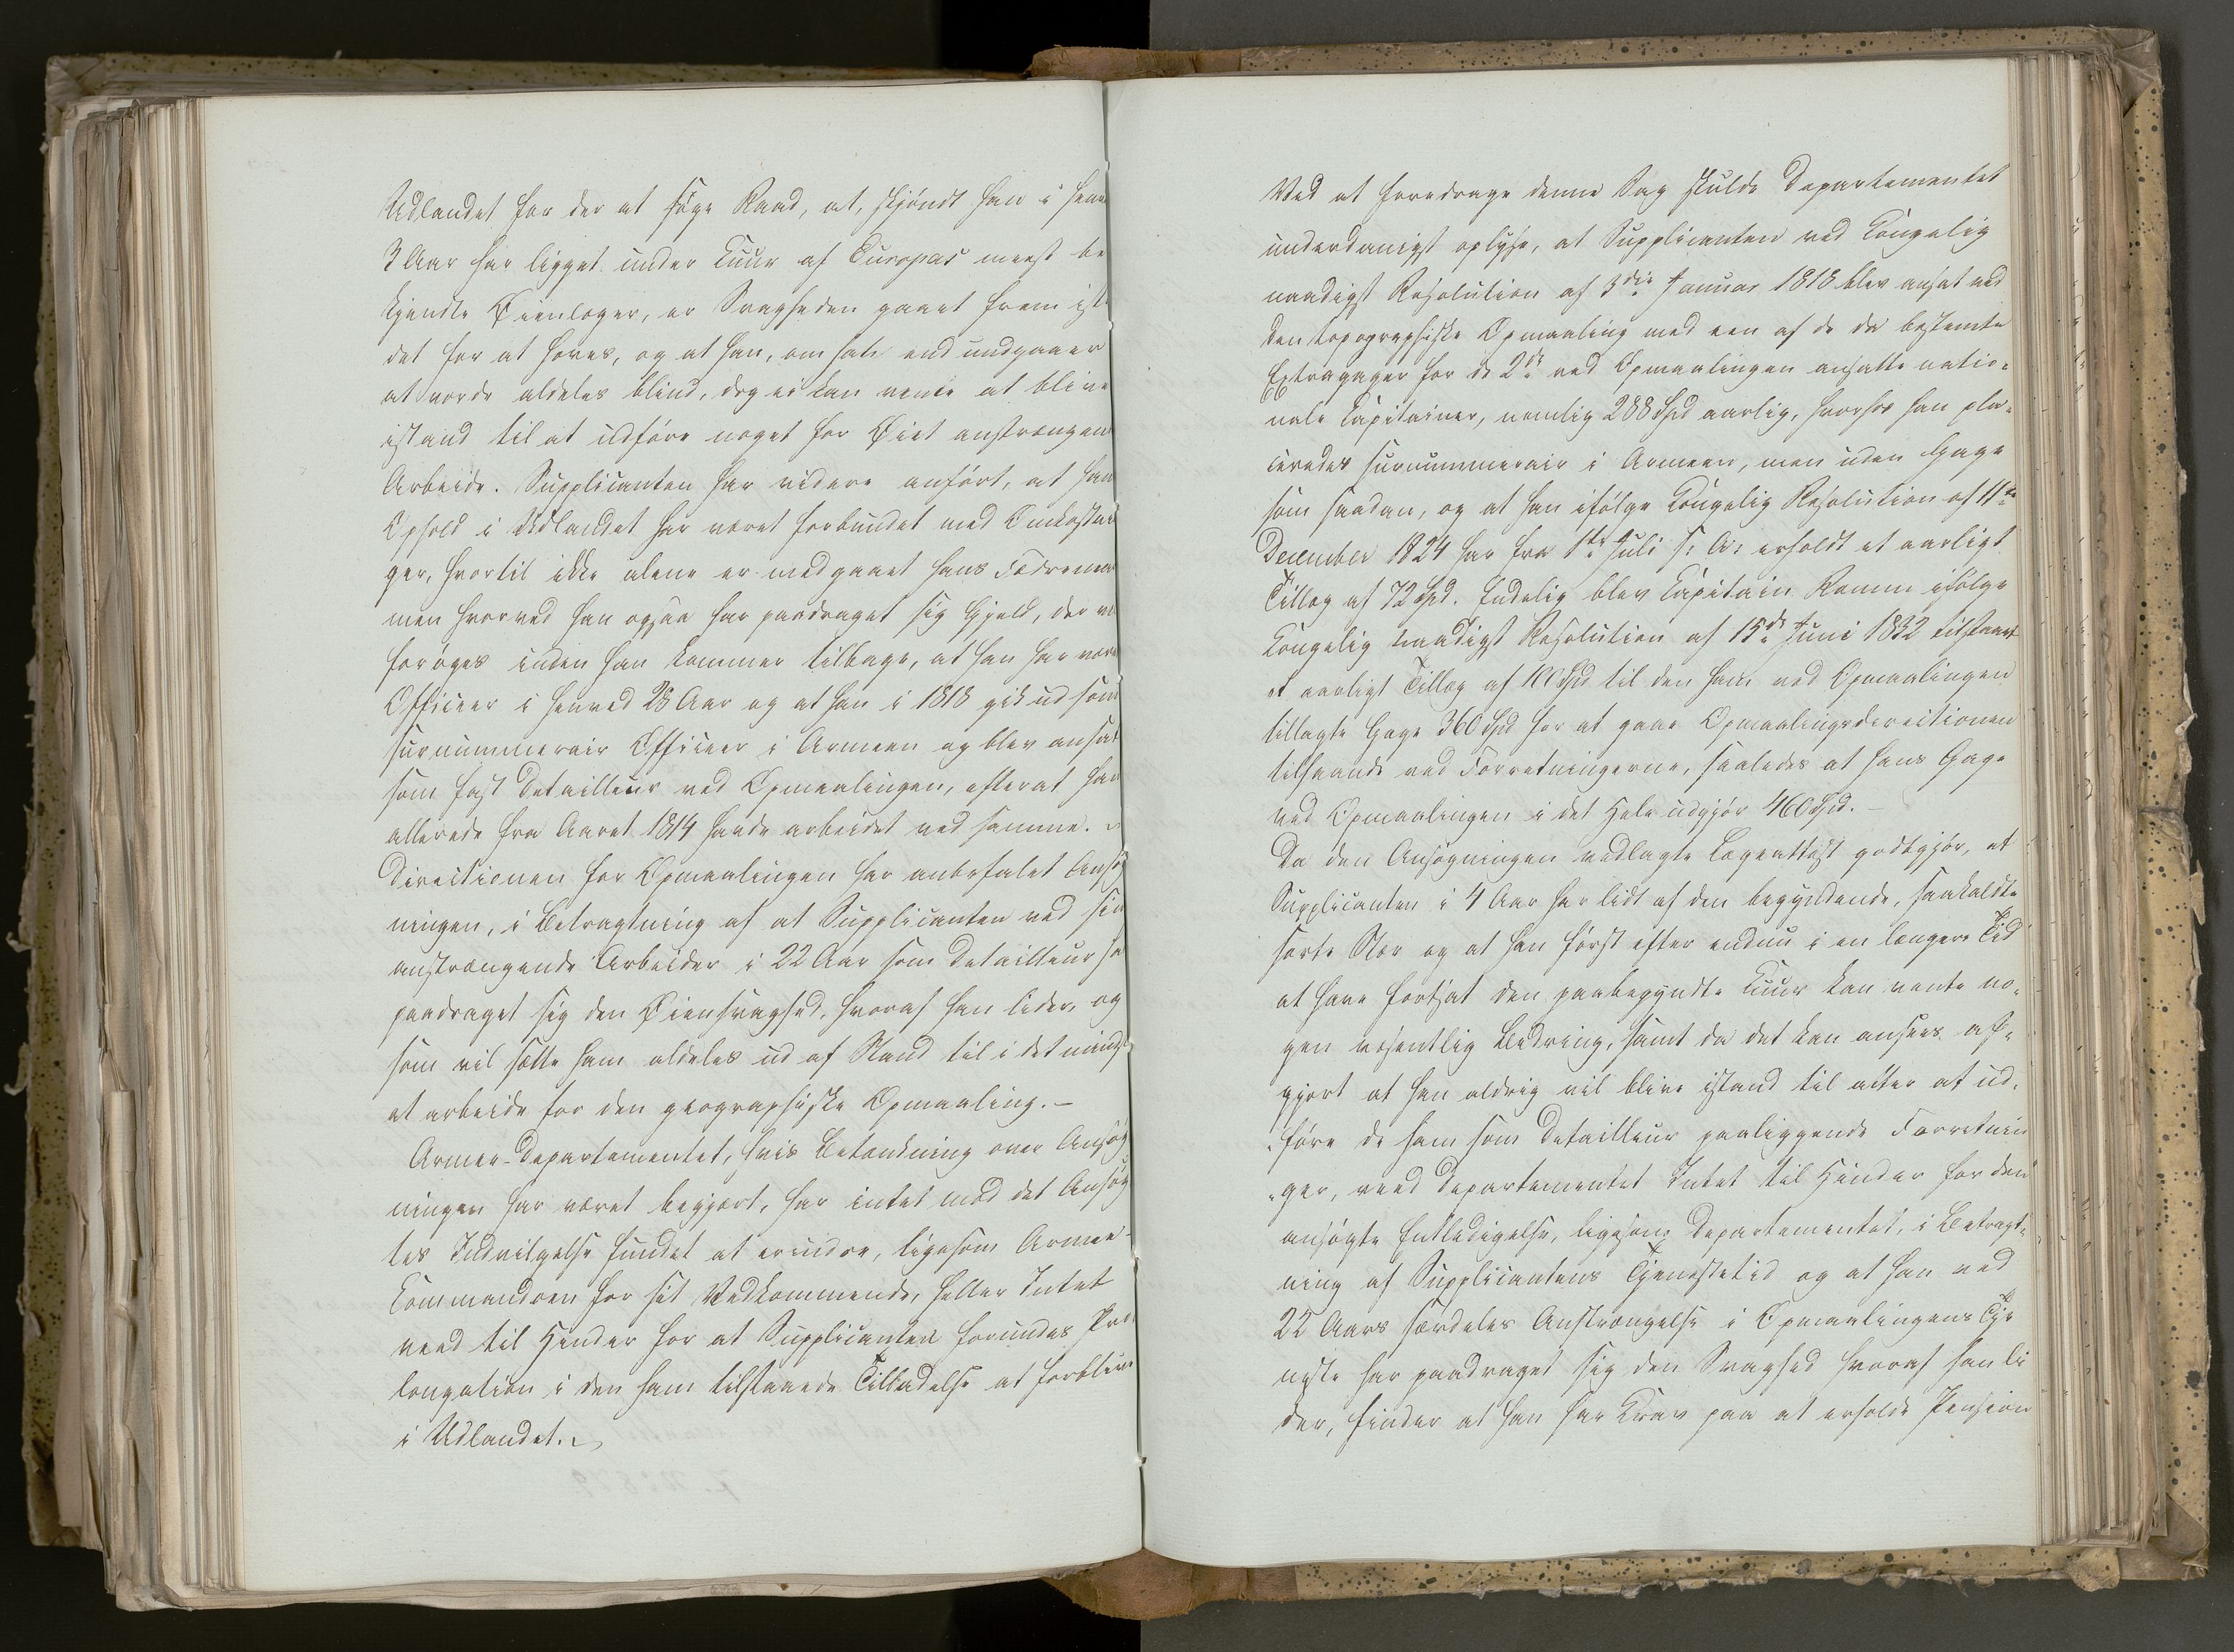 Udlandet for der at søge Raad, at, skjøndt han i hen
3 Aar har ligget under Kuur af Europas meest be
kjendte Øienlæger, er Svagheden gaaet frem ist
det for at hæves, og at han, om han end undgaaer
at vorde aldeles blind, dog ei kan vente at blive
istand til at udføre noget for Øiet anstrængen
Arbeide. Supplicanten har videre anført, at han
Ophold i Udlandet har været forbundet med Omkostnin
ger, hvortil ikke alene er medgaaet hans Fædrenea
men hvorved han ogsaa har paadraget sig Gjæld, der vi
forøges inden han kommer tilbage, at han har være
Officeer i henved 28 Aar og at han i 1818 gik ud som
surnummerair Officeer i Armeen og blev ansat
som fast Detailleur ved Opmaalingen, efterat han
allerede fra Aaret 1814 havde arbeidet ved samme.
Directionen for Opmaalingen har anbefalet Ansøg
ningen, i Betragtning af at Supplicanten ved sin
anstrængende Arbeider i 22 Aar som Detailleur ha
paadraget sig den Øiensvaghed, hvoraf han lider, og
som vil sætte ham aldeles ud af Stand til i det mindst
at arbeide for den geographiske Opmaaling. –
Armee-Departementet, hvis Betænkning over Ansøg
ningen har været begjært, har intet mod det Ansøg
tes Indvilgelse fundet at erindre, ligesom Armee-
Commandoen for sit Vedkommende, heller Intet
veed til Hinder for at Supplicanten forundes Pro
longation i den ham tilstaaede Tilladelse at forblive
i Udlandet.
Ved at foredrage denne Sag skulde Departementet
underdanigst oplyse, at Supplicanten ved Kongelig
naadigst Resolution af 3die Januar 1818 blev ansat ved
den topographiske Opmaaling med een af de da bestemte
Extragager for de 2de ved Opmaalingen ansatte natio-
nale Capitainer, nemlig 288 Spd aarlig, hvorhos han pla-
ceredes surnummerair i Armeen, men uden Gage
som saadan, og at han ifølge Kongelig Resolution af 11te
December 1824 har fra 1ste Juli s: A: erholdt et aarligt
Tillæg af 72 Spd. Endelig blev Capitain Ramm ifølge
Kongelig naadigst Resolution af 15de Juni 1832 tilstaaet
et aarligt Tillæg af 100 Spd til den ham ved Opmaalingen
tillagte Gage 360 Spd for at gaae Opmaalingsdirectionen
tilhaande ved Forretningerne, saaledes at hans Gage
ved Opmaalingen i det Hele udgjør 460 Spd. –
Da den Ansøgningen vedlagte Lægeattest godtgjør, at
Supplicanten i 4 Aar har lidt af den begyndende, saakaldte
sorte Stær og at han først efter endnu i en længere Tid
at have fortsat den paabegyndte Kuur kan vente no-
gen væsentlig Bedring, samt da det kan ansees af-
gjort at han aldrig vil blive istand til atter at ud-
føre de ham som Detailleur paaliggende Forretnin
ger, veed Departementet Intet til Hinder for den
ansøgte Entledigelse, ligesom Departementet, i Betragt-
ning af Supplicantens Tjenestetid og at han ved
22 Aars særdeles Anstrængelse i Opmaalingens Tje
neste har paadraget sig den Svaghed hvoraf han li
der, finder at han har Krav paa at erholde Pension